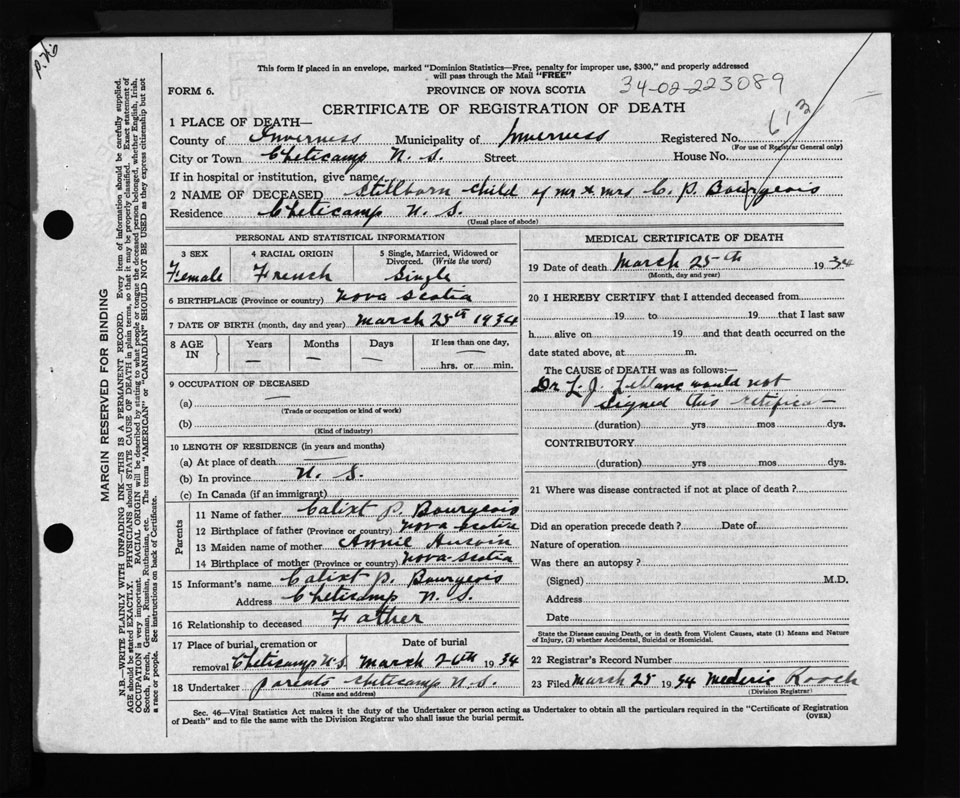 P. 26
This form if placed in an envelope, marked "Dominion Statistics—Free, penalty for improper use, $300," and properly addressed
will pass through the Mail "FREE"
FORM 6. PROVINCE OF NOVA SCOTIA 34-02-223089
CERTIFICATE OF REGISTRATION OF DEATH
1 PLACE OF DEATH— 613
County of Inverness Municipality of Inverness Registered No.
(For use of Registrar General only)
City or Town Cheticamp N. S. Street House No.
If in hospital or institution, give name
2 NAME OF DECEASED Stillborn child of mr & mrs C. P. Bourgeois
Residence Cheticamp N. S.
(Usual place of abode)
PERSONAL AND STATISTICAL INFORMATION
3 SEX 4 RACIAL ORIGIN 5 Single, Married, Widowed or
Divorced. (Write the word)
Female French Single
6 BIRTHPLACE (Province or country) Nova Scotia
7 DATE OF BIRTH (month, day and year) March 25th 1934
8 AGE IN Years Months Days If less than one day,
— — — —
hrs. or min.
9 OCCUPATION OF DECEASED
(a) —
(Trade or occupation or kind of work)
(b)
(Kind of industry)
10 LENGTH OF RESIDENCE (in years and months)
(a) At place of death
(b) In province N. S.
(c) In Canada (if an immigrant)
Parents
11 Name of father Calixt P. Bourgeois
12 Birthplace of father (Province or country) Nova Scotia
13 Maiden name of mother Annie
14 Birthplace of mother (Province or country) Nova-Scotia
15 Informant's name Calixt P. Bourgeois
Address Cheticamp N. S.
16 Relationship to deceased Father
17 Place of burial, cremation or Date of burial
removal Cheticamp N.S. March 26th 1934
18 Undertaker parents Cheticamp N. S.
(Name and address)
MEDICAL CERTIFICATE OF DEATH
19 Date of death March 25-th 1934
(Month, day and year)
20 I HEREBY CERTIFY that I attended deceased from
19 to 19 that I last saw
h alive on 19 and that death occurred on the
date stated above, at m.
The CAUSE of DEATH was as follows:—
Dr L. J. Leblanc would not
Signed this
(duration) yrs mos dys.
CONTRIBUTORY
(duration) yrs mos dys.
21 Where was disease contracted if not at place of death?
Did an operation precede death? Date of
Nature of operation
Was there an autopsy?
(Signed) M.D.
Address
Date
State the Disease causing Death, or in death from Violent Causes, state (1) Means and Nature
of Injury, (2) whether Accidental, Suicidal or Homicidal.
22 Registrar's Record Number
23 Filed March 25 1934 Mederic
(Division Registrar)
Sec. 46—Vital Statistics Act makes it the duty of the Undertaker or person acting as Undertaker to obtain all the particulars required in the "Certificate of Registration
of Death" and to file the same with the Division Registrar who shall issue the burial permit. (OVER)
MARGIN RESERVED FOR BINDING
N.B.—WRITE PLAINLY WITH UNFADING INK—THIS IS A PERMANENT RECORD. Every item of information should be carefully supplied.
AGE should be stated EXACTLY. PHYSICIANS should STATE CAUSE OF DEATH in plain terms, so that it may be properly classified. Exact statement of
OCCUPATION is very important. RACIAL ORIGIN will be described by stating to what people or tongue the deceased person belonged, whether English, Irish,
Scotch, French, German, Russian, Ruthenian, etc. The terms "AMERICAN" or "CANADIAN" SHOULD NOT BE USED as they express citizenship but not
a race or people. See instructions on back of Certificate.